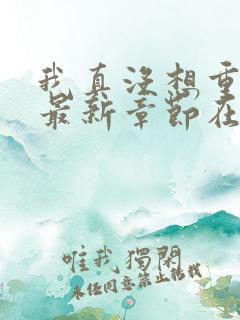 我真没想重
最新章节在
唯我獨閑
未任同意禁止转载